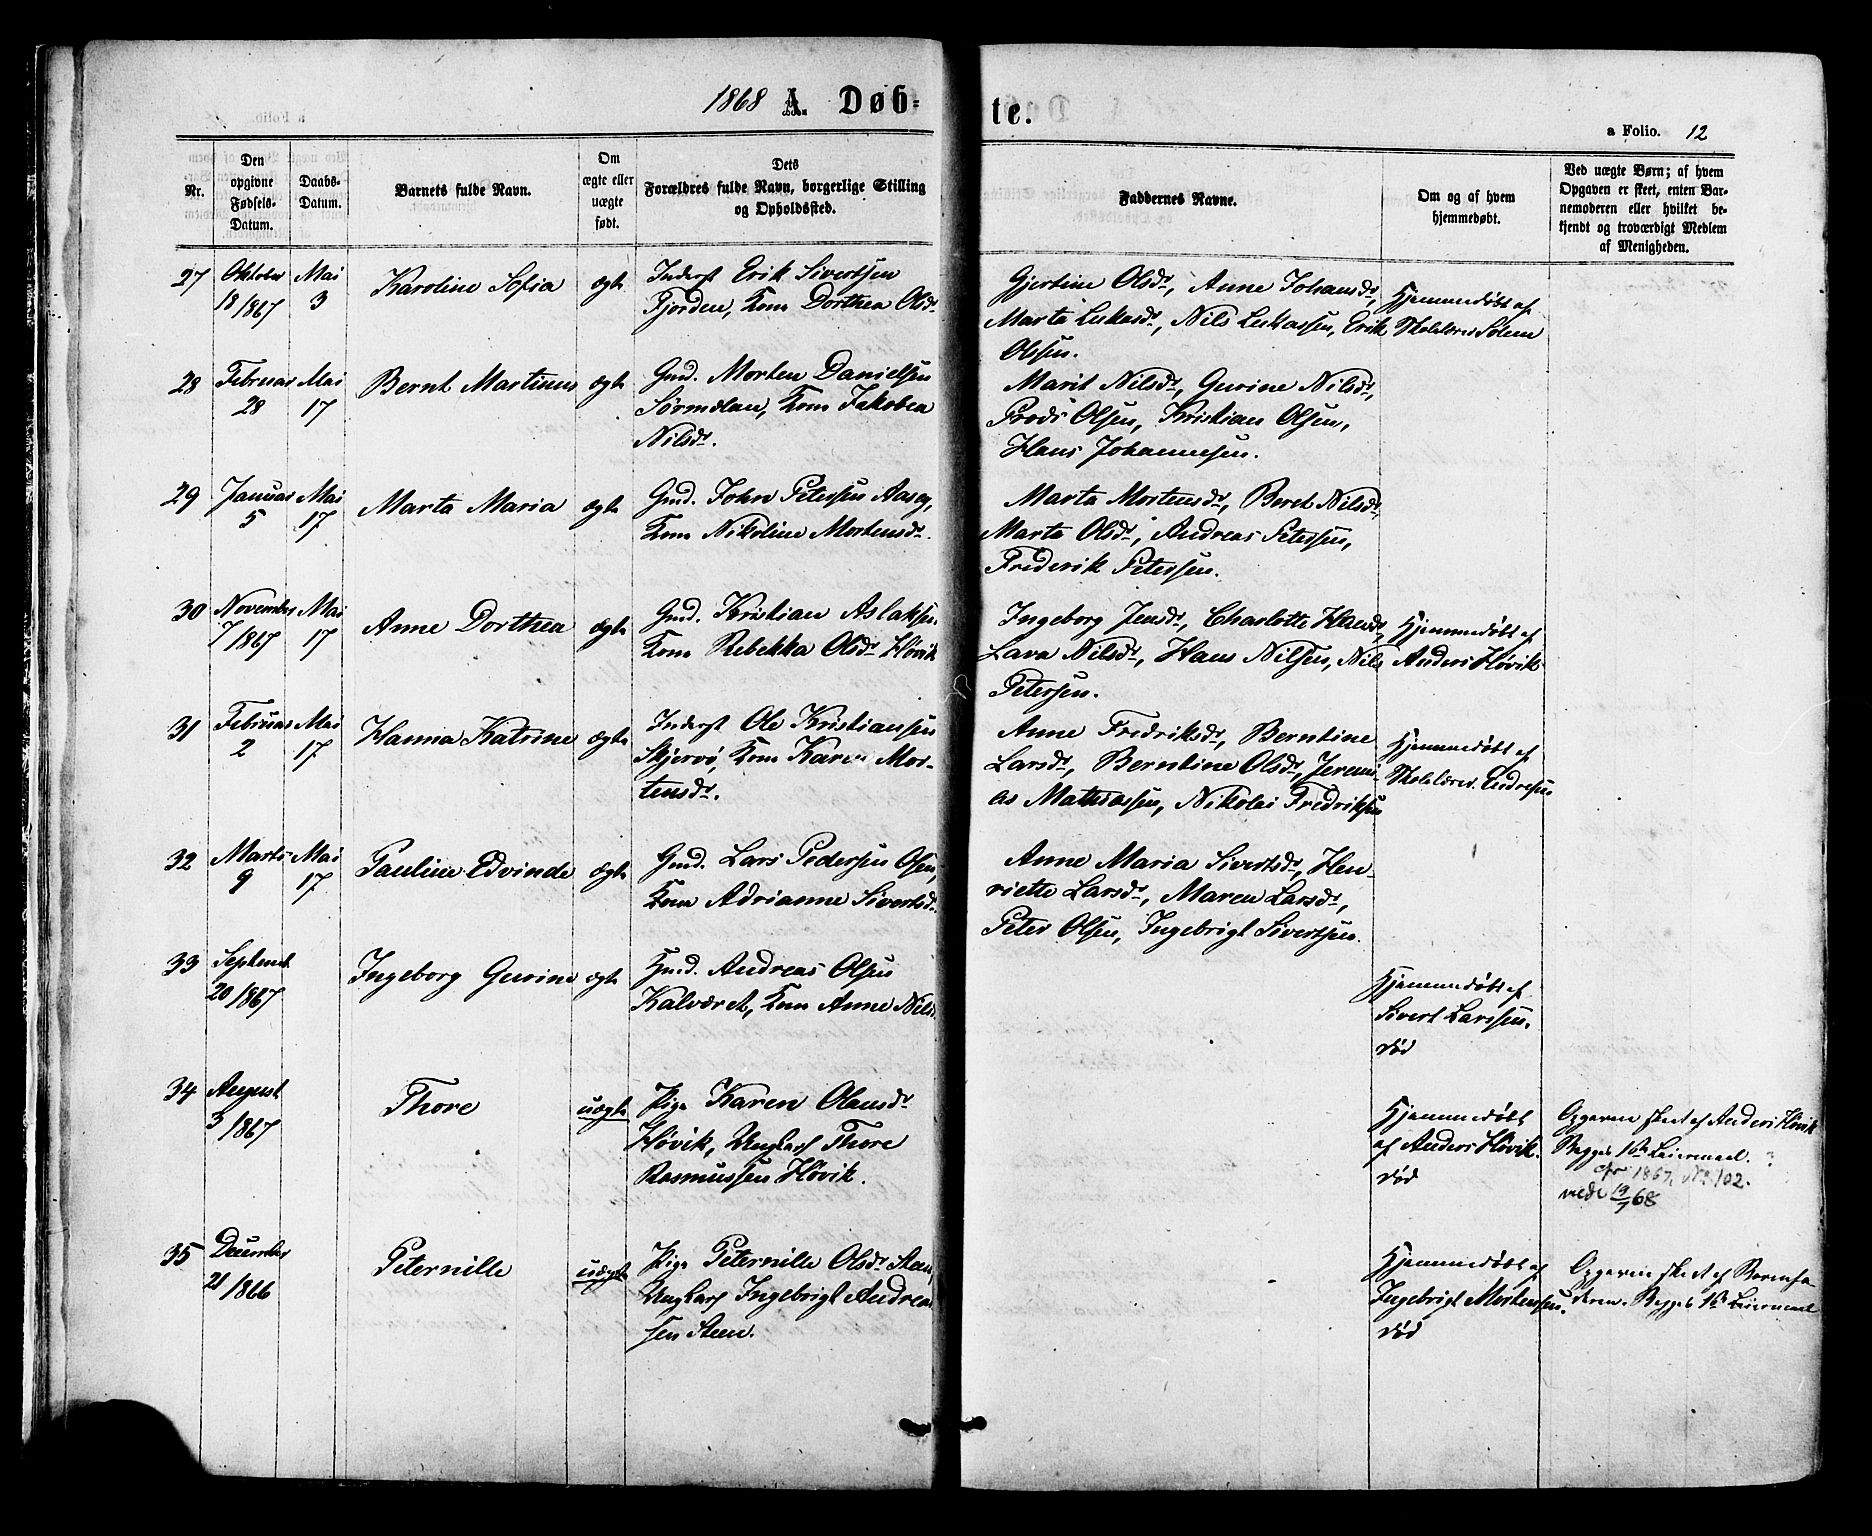 1868 A. Døb-
te.
a Folio. 12
Nr.
Den
opgivne
Fødsels-
Datum.
Daabs-
Datum.
Barnets fulde Navn.
Om
ægte eller
uægte
født.
Dets
Forældres fulde Navn, borgerlige Stilling
og Opholdssted.
Faddernes Navne.
Om og af hvem
hjemmedøbt.
Ved uægte Børn; af hvem
Opgaven er skeet, enten Bar-
nemoderen eller hvilket be-
kjendt og troværdigt Medlem
af Menigheden.
27
Oktober
18/1867
Mai
3
Karoline Sofia
ægte
Inderst Erik Sivertsen
Fjorden, Kone Dorthea Olsdr
Gjertine Olsdr, Anne Johansdr,
Marta Lukasdr, Nils Lukassen, Erik
Olssen.
Hjemmedøbt af
Skolelærer Solem
28
Februar
28
Mai
17
Bernt Martinus
ægte
Gmd. Morten Danielsen
Sørmelan, Kone Jakobea
Nilsdr.
Marit Nilsdr, Gurine Nilsdr,
Olsen, Kristian Olsen,
Hans Johannesen.
29
Januar
5
Mai
17
Marta Maria
ægte
Gmd. John Petersen Aaseg,
Kone Nikoline Mortensdr.
Marta Mortensdr, Beret Nilsdr,
Marta Olsdr, Andreas Petersen,
Frederik Petersen.
30
November
7/1867
Mai
17
Anne Dorthea
ægte
Gmd. Kristian Aslaksen
Kone Rebekka Olsdr Høvik
Ingeborg Jensdr, Charlotte Hansdr,
Lava Nilsdr, Hans Nilsen, Nils
Petersen.
Hjemmedøbt af
Anders Høvik
31
Februar
2
Mai
17
Hanna Katrine
ægte
Inderst Ole Kristiansen
Skjervø, Kone Karen Mor-
tensdr.
Anne Fredriksdr, Berntine
Larsdr, Berntine Olsdr, Jeremi-
as Mathiassen, Nikolai Fredriksen
Hjemmedøbt af
Skolelærer Endresen
32
Marts
9
Mai
17
Pauline Edvinde
ægte
Gmd. Lars Pedersen Osen,
Kone Adrianne Sivertsdr.
Anne Maria Sivertsdr, Hen-
riette Larsdr, Maren Larsdr,
Peter Olsen, Ingebrigt Sivertsen.
33
Septemb.
20/1867
Ingeborg Gurine
ægte
Hmd. Andreas Olsen
Kalværet, Kone Anne Nilsdr.
Hjemmedøbt af
Sivert Larssen.
død
34
August
3/1867
Thore
uægte
Pige Karen Olausdr
Høvik, Ungkarl Thore
Rasmussen Høvik.
Hjemmedøbt
af Anders Høvik.
død
Opgaven skeet af Anders Høvik
Begges 1ste Leiermaal.
cfr 1867, No 102.
viede 19/7 68
35
December
21/1866
Peternille
uægte
Pige Peternille Olsdr Steen,
Ungkarl Ingebrigt Andreas-
sen Steen.
Hjemmedøbt af
Ingebrigt Mortenssen.
død
Opgaven skeet af Barnefa-
deren. Begges 1ste Leiermaal